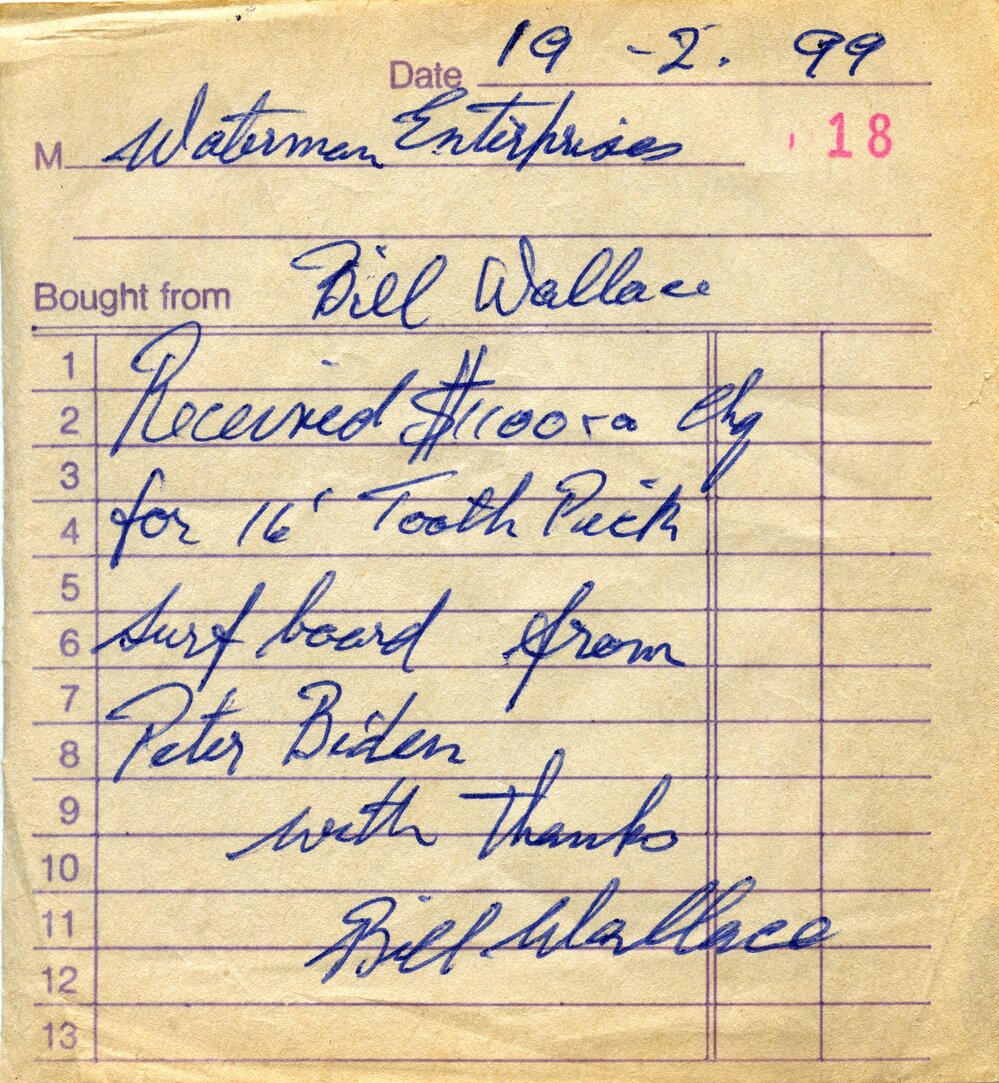 Date 19 - 2. 99
M Waterman Enterprises 18
Bought from Bill Wallace
1
2 Received $1100-0 Chq
3
4 for 16' Tooth Pick
5
6 surf board from
7
8 Peter Biden
9 with Thanks
10
11 Bill Wallace
12
13